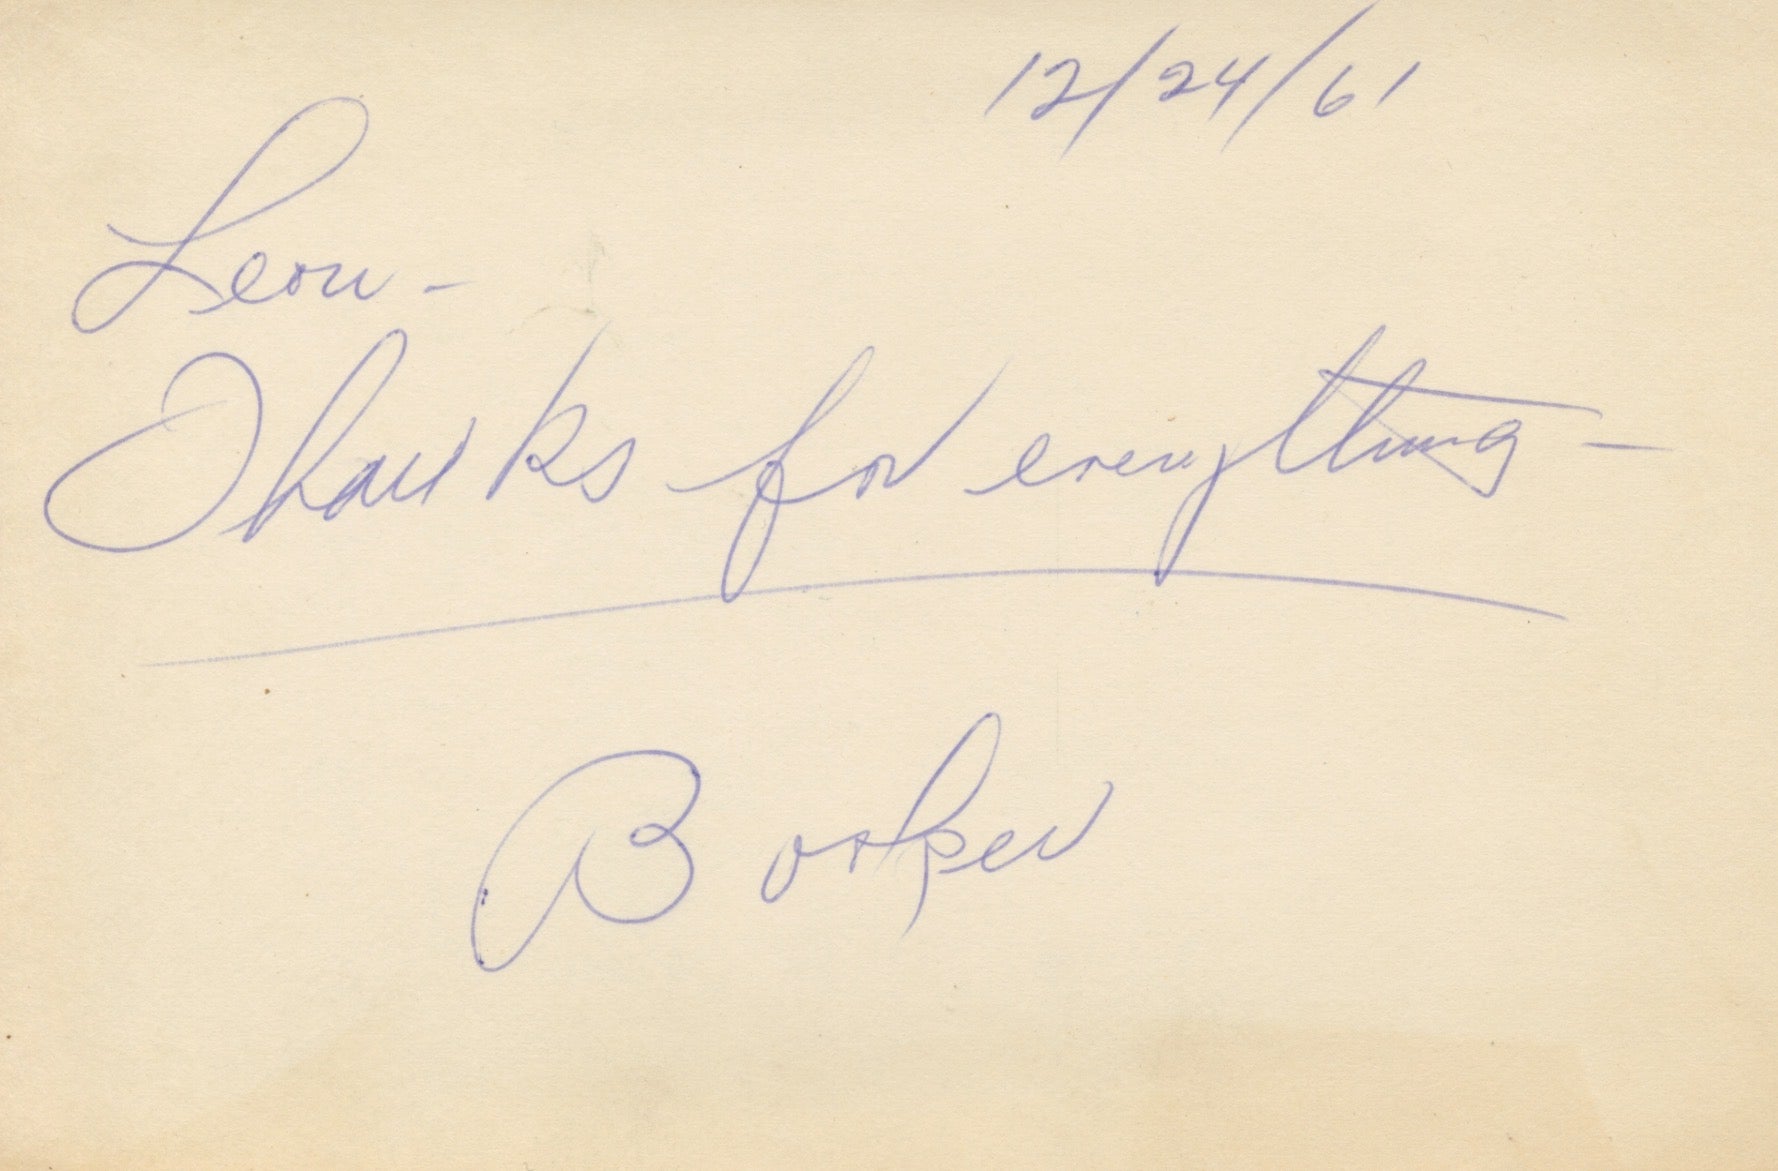 12/24/61
Leon -
Thanks for everything -
Booker